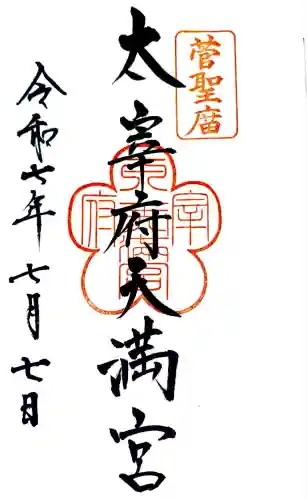 菅聖庿
太宰府天満宮
令和七年七月七日